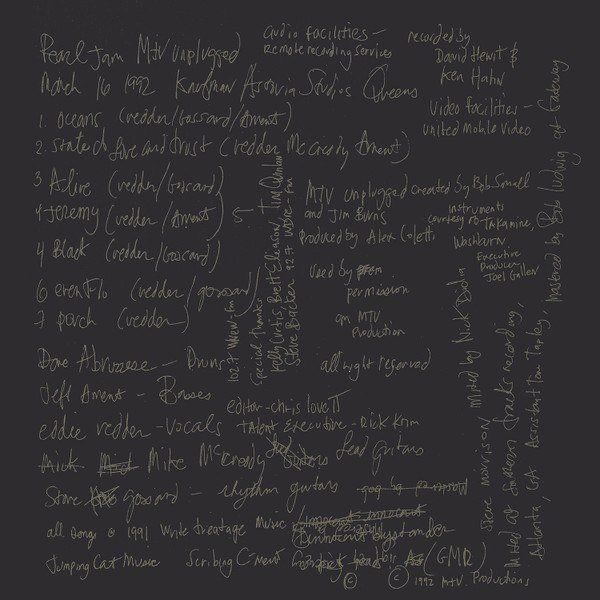 Pearl Jam MTV unplugged
March 16 1992 Kaufman Astoria Studios Queens
1. Oceans (vedder/Gossard/Ament)
2. State of love and trust (vedder McCready Ament)
3 Alive (vedder/Gossard)
4 Jeremy (vedder/Ament)
4 Black (vedder/Gossard)
6 evenflo (vedder/gossard)
7 porch (vedder)
Dave Abruzzese - Drums
Jeff Ament - Basses
eddie vedder - vocals
Mick Mike McCready Lead guitars
Stone gossard - rhythm guitars
all songs © 1991 write treatage music innocent bystander
Jumping Cat Music Scribing C-ment (GMR)
© © 1992 MTV. Productions
audio facilities -
Remote recording services
recorded by
David Hewitt &
Ken Hahn
Video facilities -
united mobile video
MTV unplugged created by Bob Small
and Jim Burns
Produced by Alex Coletti
instruments
courtesy of takamine,
Washburn
Executive
Producer
Joel Gallen
Used by
permission
MTV
Production
all right reserved
editor - chris lovett
Talent Executive - Rick Krim
102.7 WNEW - fm
Special thanks
Kelly Curtis, Brett Eliason, Tim Quinlan
Steve Backer 92.7 WDRE - fm
Steve morrison mixed by Nick Didia
Mixed at southern tracks recording,
Atlanta, GA Assistant Tom Tapley, mastered by Bob Ludwig at Gateway